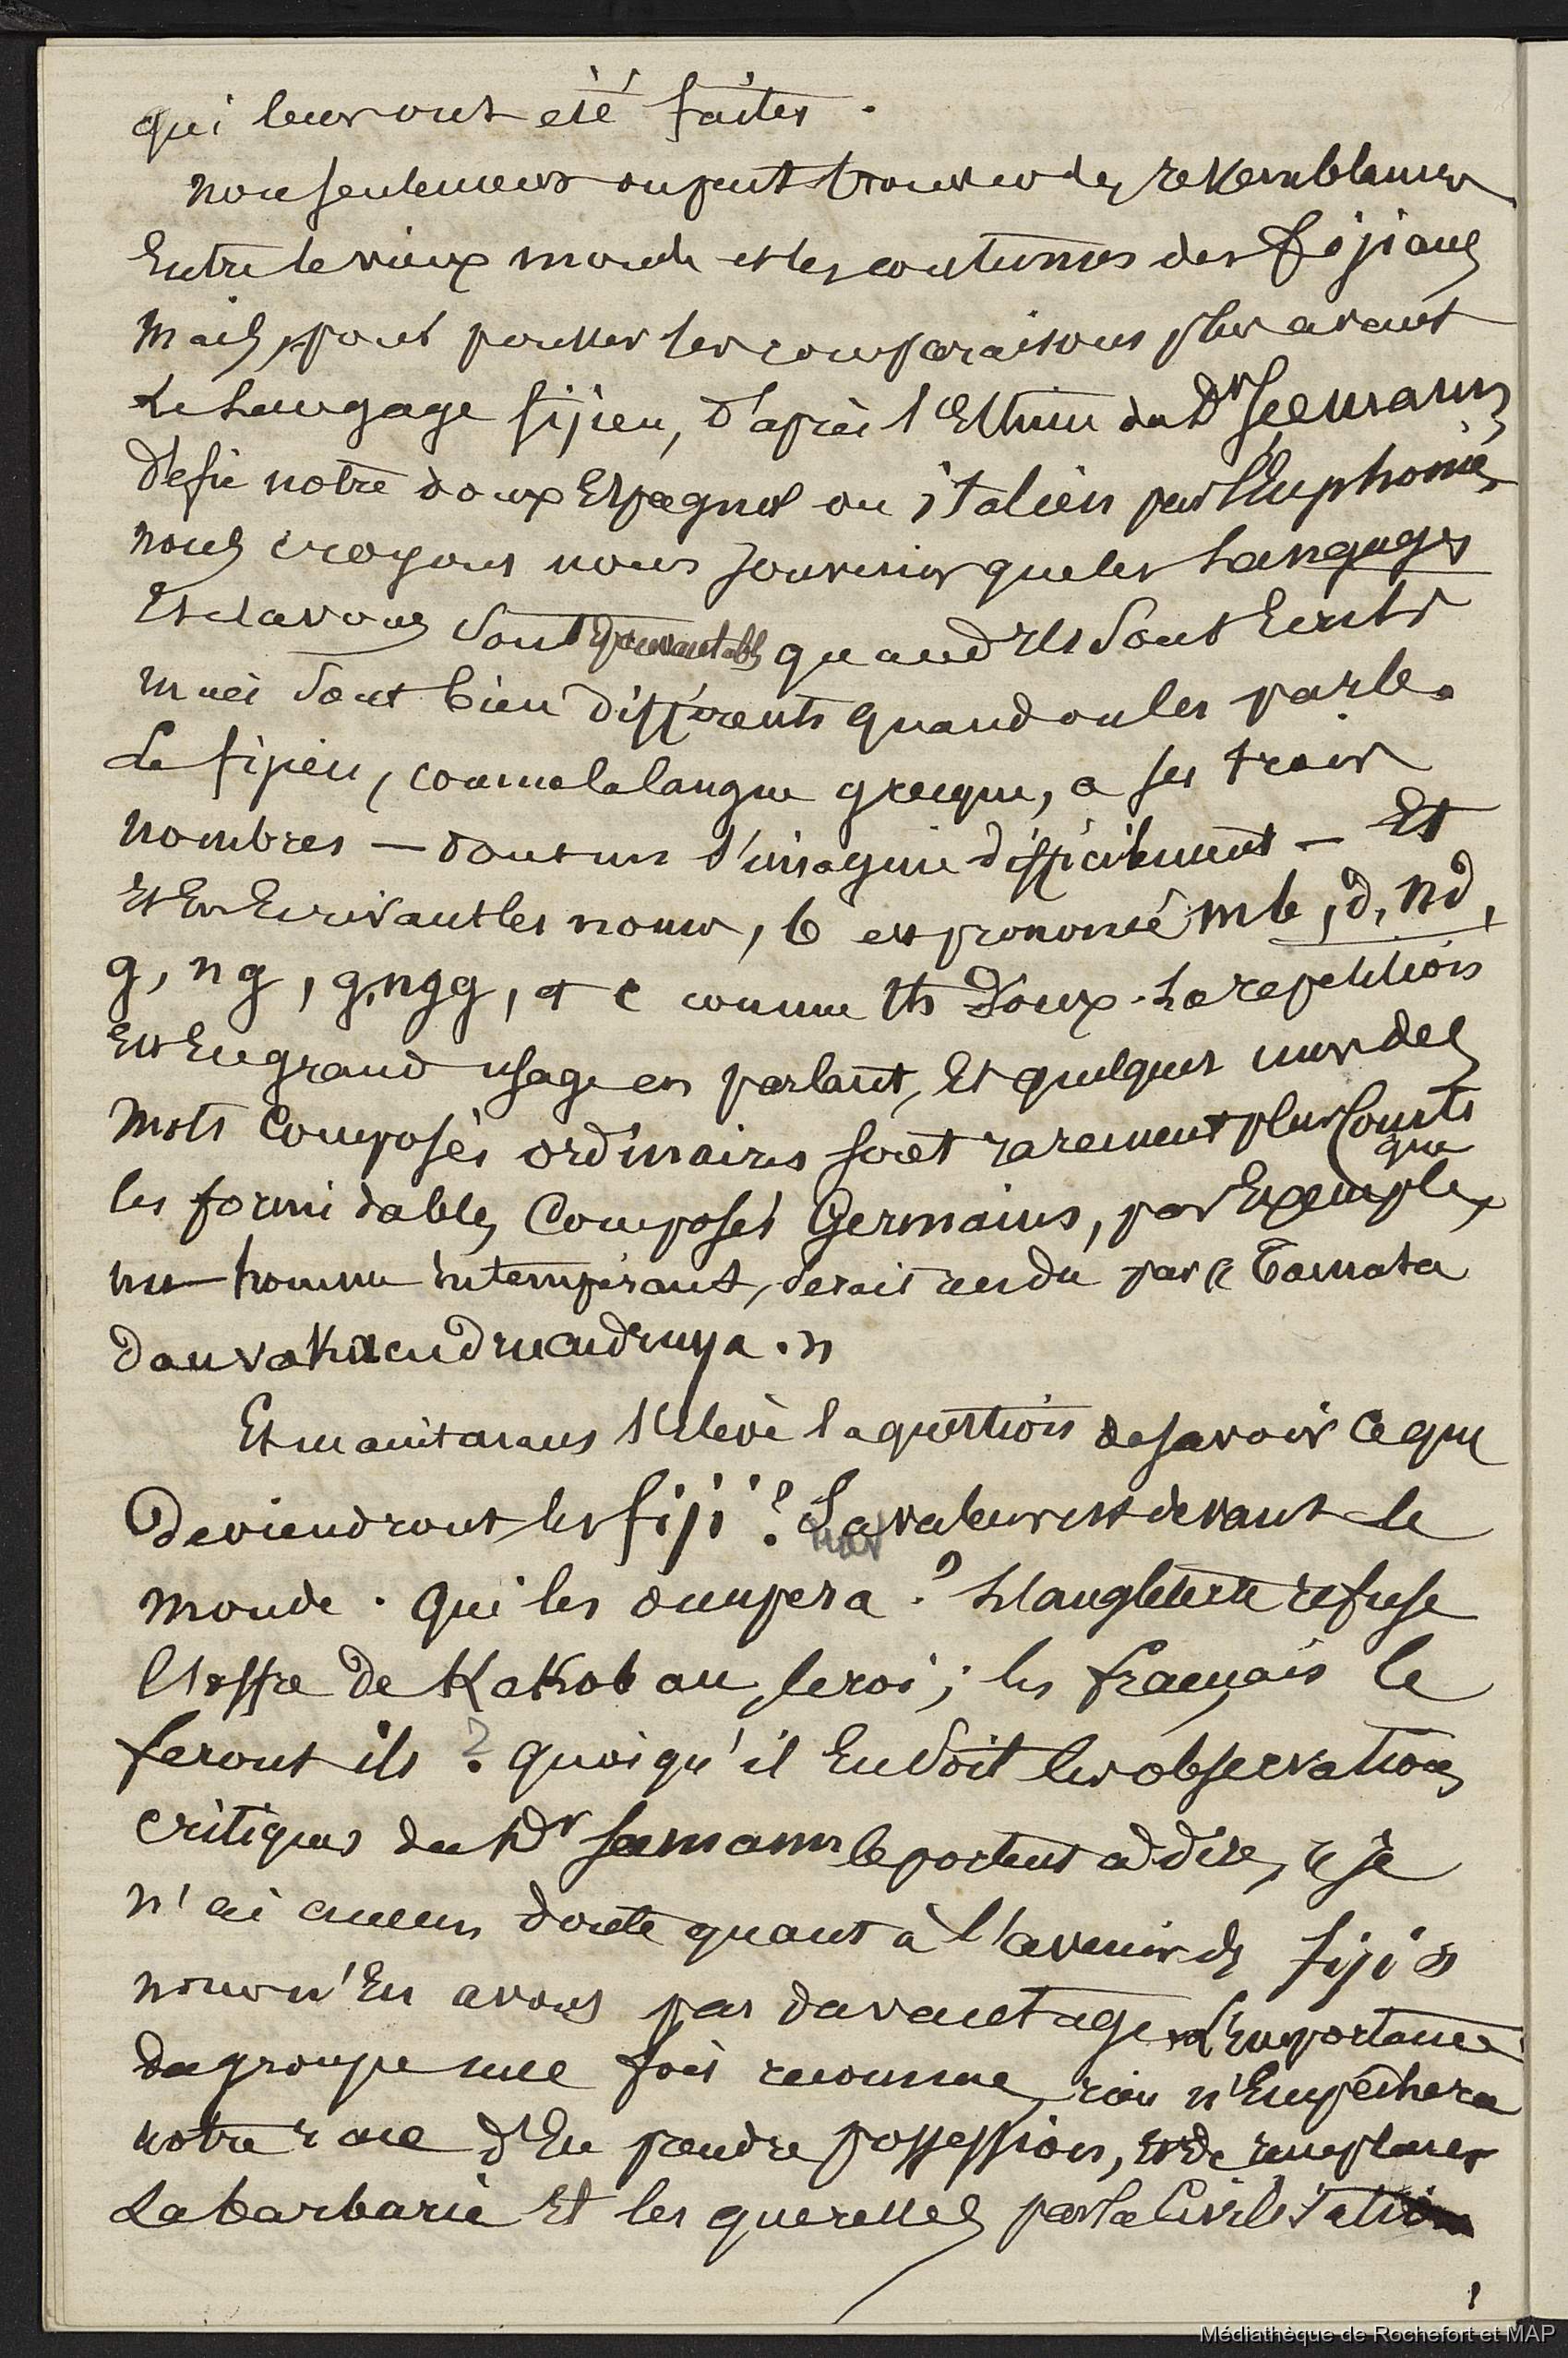 qui leur ont été faites.
non seulement on peut trouver des ressemblances
Entre le vieux monde et les coutumes des fijians
Mais, pour pousser les comparaisons plus avant
Le Langage fijien, d'après l'Estime du Dr Seemann,
défie notre doux Espagnol ou italien par l'Euphonie,
nous croyons nous souvenir que les Langages
Esclavons sont épouvantables quand ils sont Ecrits
mais sont bien différents quand on les parle.
Le fijien, comme la langue grecque, a ses trois
nombres — dont un s'imagine difficilement — Et
Et En Ecrivant les noms, b est prononcé mb, d, nd,
g, ng, g, ngg, et c comme th doux. La repetition
Est En grand usage en parlant, Et quelques uns des
mots Composés ordinaires sont rarement plus Courts
que
les formidables Composés Germains, par Exemple,
un homme intempérant, serait rendu par « Tamata
dauvakaucudrucudruya. »
Et maintenant s'élève la question de savoir Ce que
Deviendront les fiji ? La valeur est devant le
monde. Qui les occupera ? L'angleterre refuse
l'offre de Kakobau, le roi ; les français le
feront ils ? quoiqu'il En soit les observations
critiques du Dr Seemann le portent à dire, « je
n'ai aucun doute quant à l'avenir des fiji »
nous n'En avons pas davantage. L'Importance
du groupe une fois reconnue, rien n'Empêchera
notre race d'En prendre possession, et de remplacer
La barbarie Et les querelles par la Civilisation
Médiathèque de Rochefort et MAP